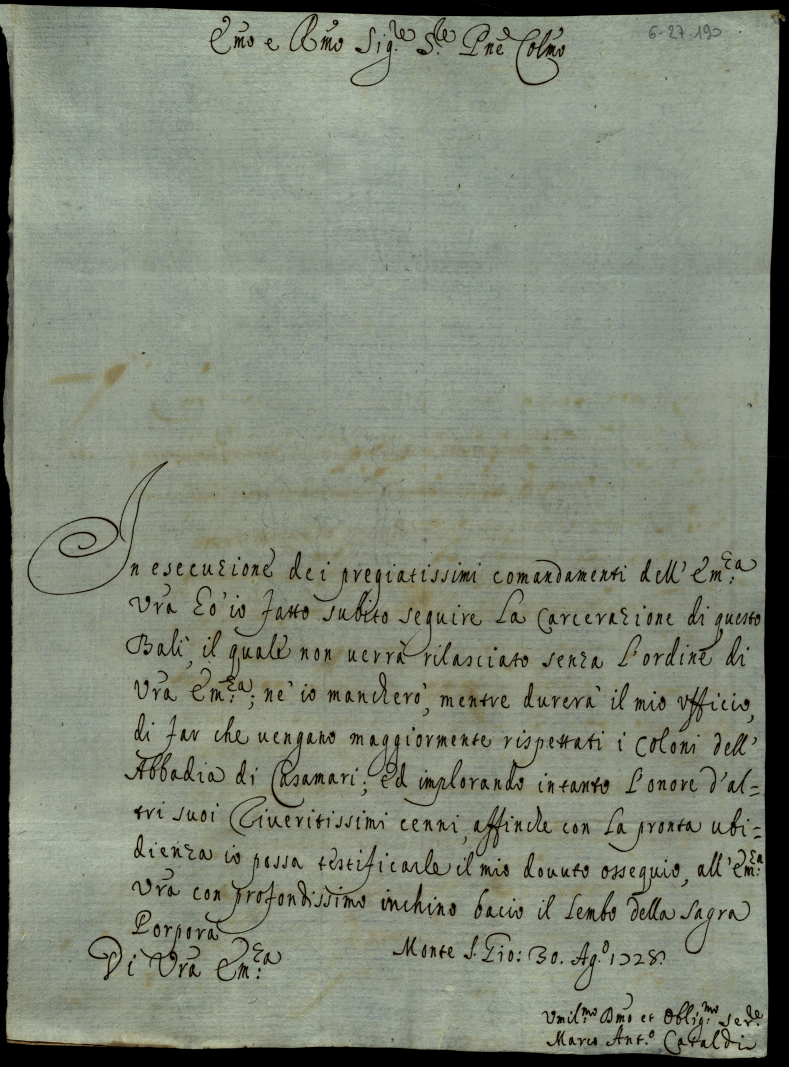 6-27-190
Emo e Rmo Sig.re S.re Pne Colmo
In esecuzione dei pregiatissimi comandamenti dell' Em.za
Vra hò io fatto subito seguire la carcerazione di questo
Balì, il quale non uerrà rilasciato senza l'ordine di
Vra Em.za; nè io mancherò, mentre durerà il mio Vfficio,
di far che uengano maggiormente rispettati i Coloni dell'
Abbadia di Casamari; ed implorando intanto l'onore d'al=
tri suoi riueritissimi cenni, affinche con la pronta ubi=
dienza io possa testificarle il mio douuto ossequio, all'Em.za
Vra con profondissimo inchino bacio il lembo della sagra
Porpora
Di Vra Em.za Monte S. Gio: 30. Ag.o 1728.
Vmil.mo Dmo et Oblig.mo ser.re
Marco Ant.o Cataldi